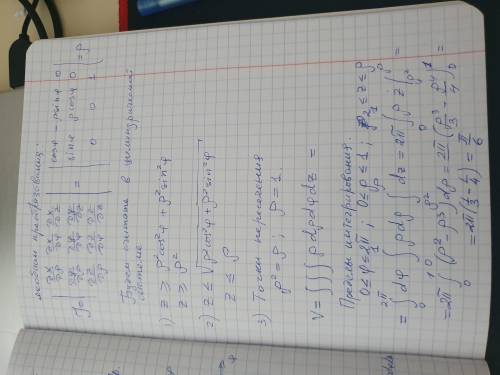 якобиан преобразования.
J₀ = | ∂x/∂ρ ∂x/∂φ ∂x/∂z ; ∂y/∂ρ ∂y/∂φ ∂y/∂z ; ∂z/∂ρ ∂z/∂φ ∂z/∂z | = | cosφ -ρsinφ 0 ; sinφ ρcosφ 0 ; 0 0 1 | = ρ
Будем считать в цилиндрической
системе
1) z ≥ ρ²cos²φ + ρ²sin²φ
z ≥ ρ²
2) z ≤ √(ρ²cos²φ + ρ²sin²φ)
z ≤ ρ
3) Точки пересечения
ρ² = ρ ; ρ = 1
V = ∫∫∫ ρ dρ dφ dz =
Пределы интегрирования.
0 ≤ φ ≤ 2π ; 0 ≤ ρ ≤ 1 ; ρ² ≤ z ≤ ρ
= ∫₀^2π dφ ∫₀^1 ρ dρ ∫_ρ²^ρ dz = 2π ∫₀^1 (ρ z |_ρ²^ρ =
= 2π ∫₀^1 (ρ² - ρ³) dρ = 2π (ρ³/3 - ρ⁴/4)|₀^1 =
= 2π (1/3 - 1/4) = π/6